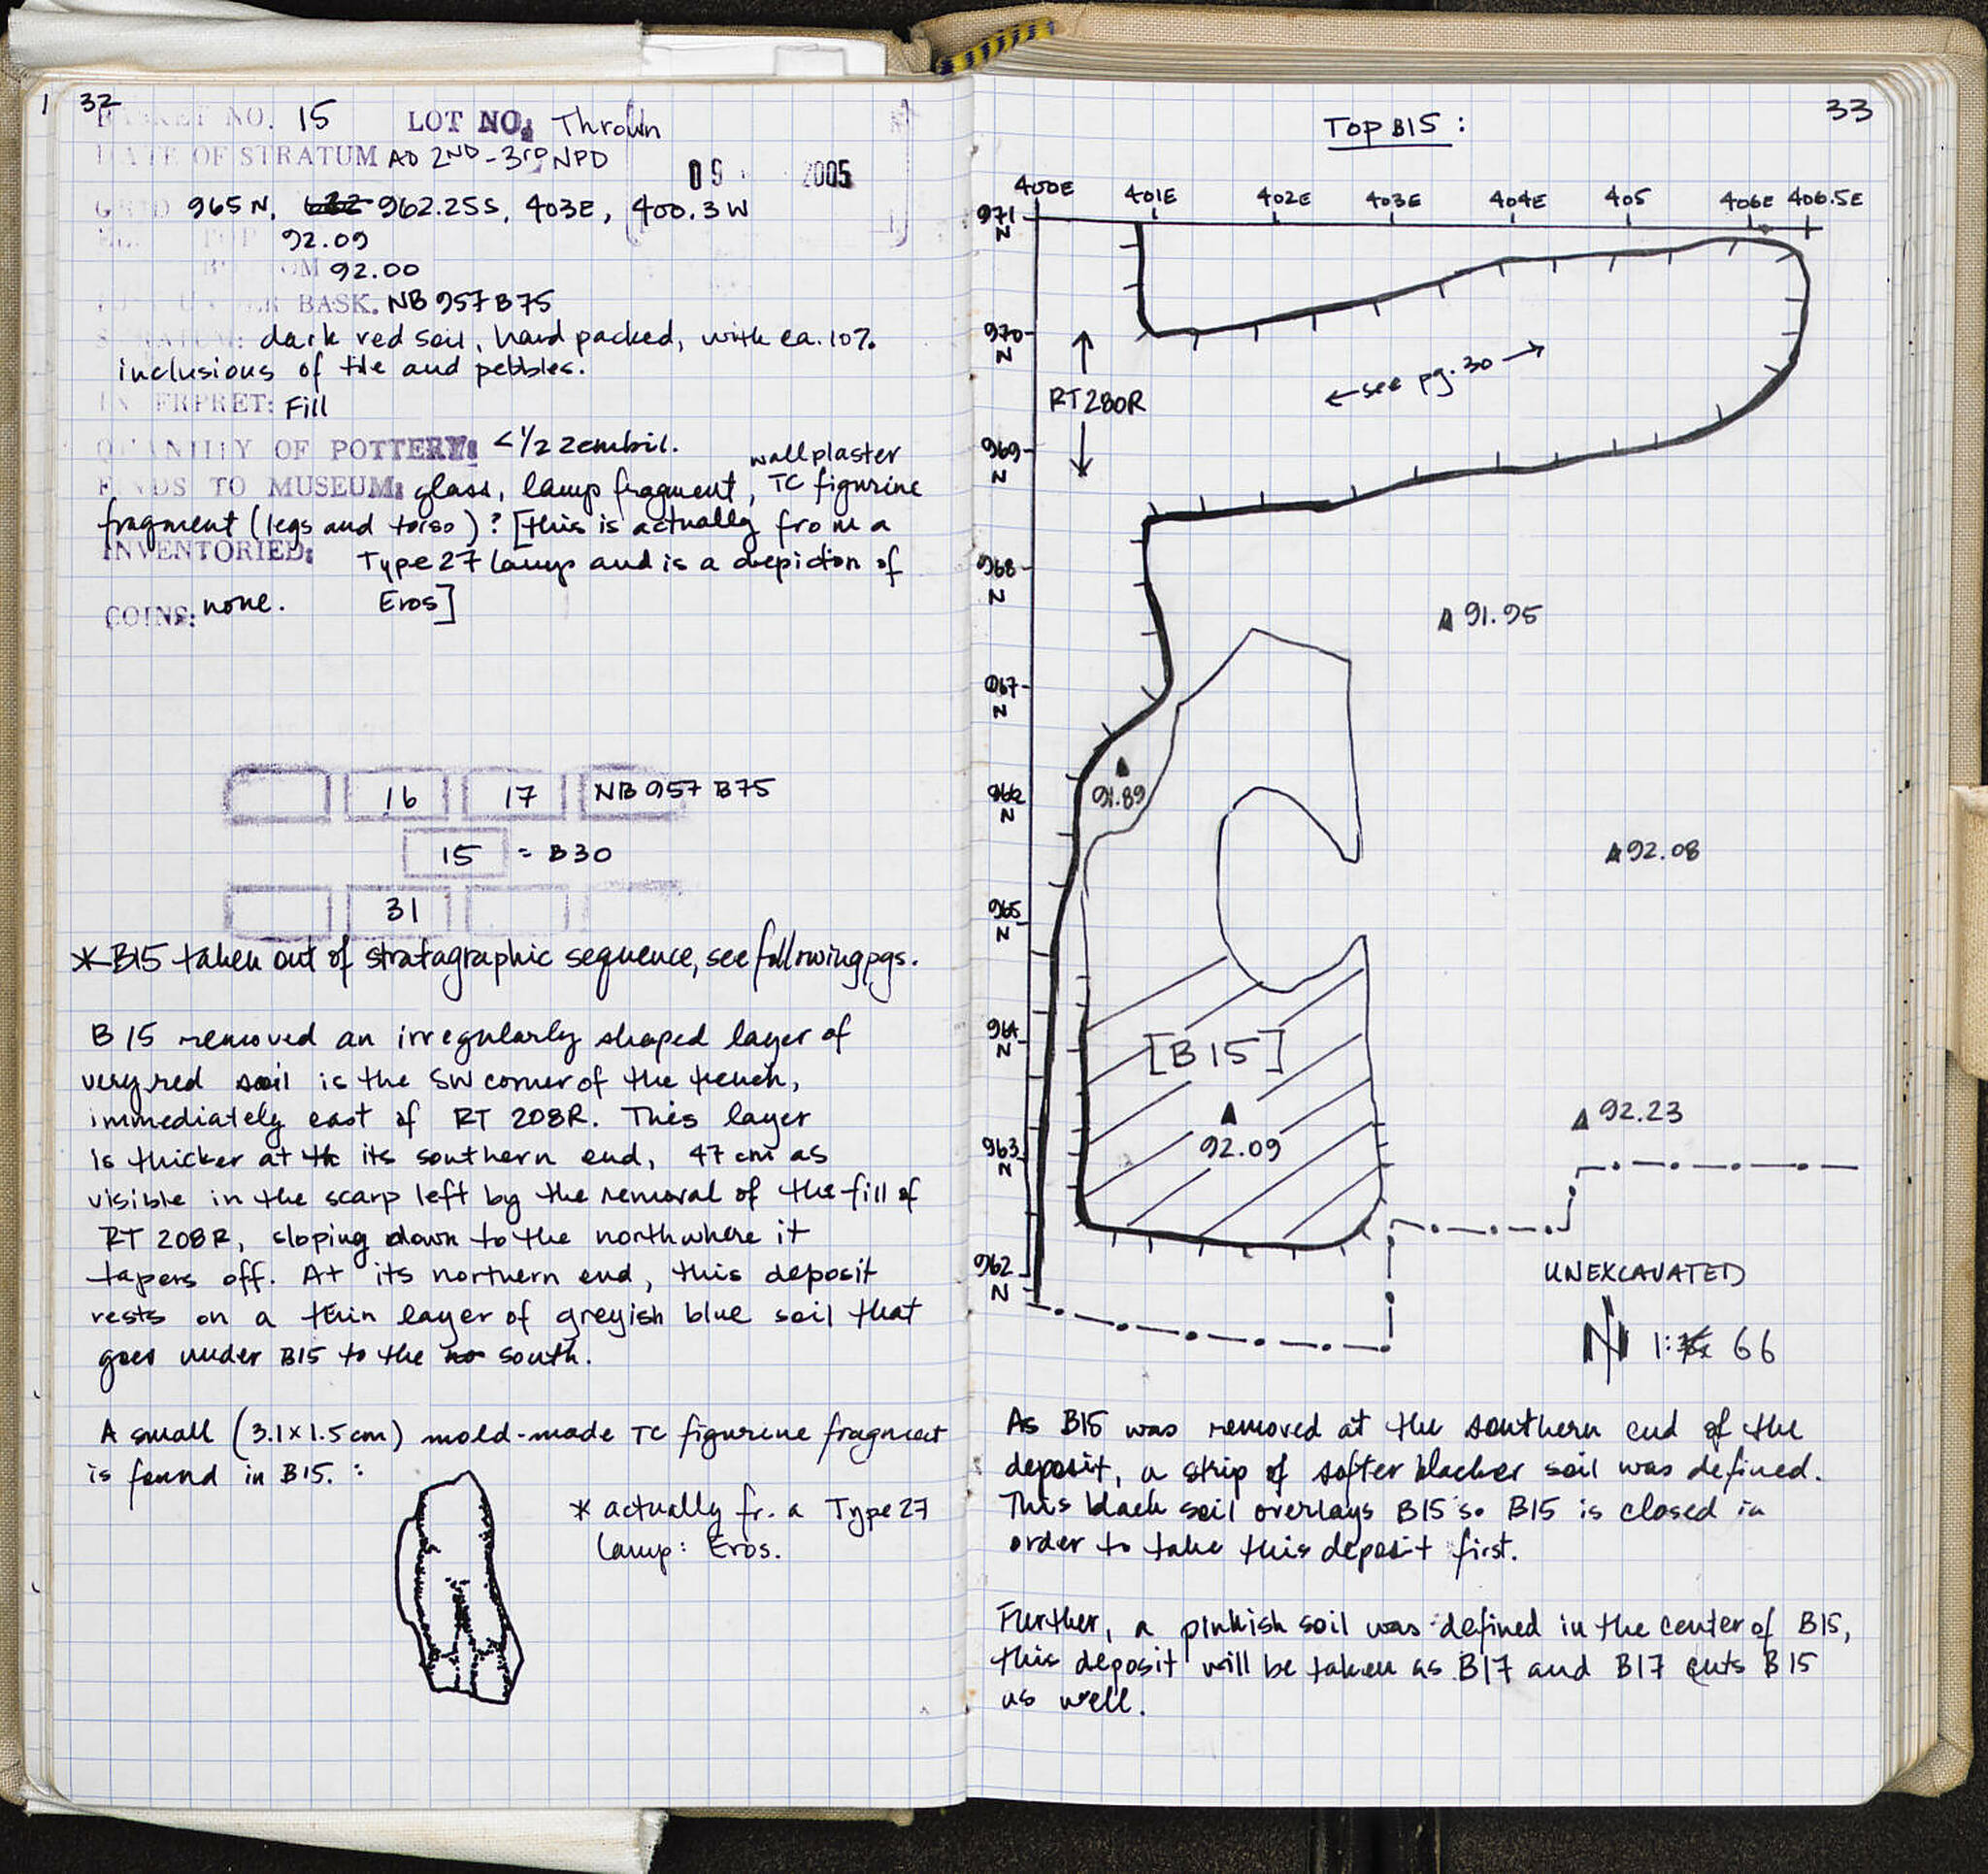 32
BASKET NO. 15 LOT NO. Thrown
DATE OF STRATUM AD 2ND-3RD NPD
09 2005
GRID 965N, 962.25S, 403E, 400.3W
TOP 92.09
BOTTOM 92.00
UNDER BASK. NB957 B75
STRATUM: dark red soil, hard packed, with ca. 10%
inclusions of tile and pebbles.
INTERPRET: Fill
QUANTITY OF POTTERY: <1/2 zembil.
wall plaster
FINDS TO MUSEUM: glass, lamp fragment, TC figurine
fragment (legs and torso)? [this is actually from a
INVENTORIED: Type 27 lamp and is a depiction of
COINS: none. Eros]
16 17 NB957 B75
15 = B30
31
*B15 taken out of stratagraphic sequence, see following pgs.
B15 removed an irregularly shaped layer of
very red soil is the SW corner of the trench,
immediately east of RT 208R. This layer
is thicker at its southern end, 47 cm as
visible in the scarp left by the removal of the fill of
RT 208R, sloping down to the north where it
tapers off. At its northern end, this deposit
rests on a thin layer of greyish blue soil that
goes under B15 to the south.
A small (3.1x1.5cm) mold-made TC figurine fragment
is found in B15. :
* actually fr. a Type 27
lamp: Eros.
33
TOP B15 :
400E 401E 402E 403E 404E 405 406E 406.5E
971
N
970
N
RT280R
←see pg. 30→
969
N
968
N
91.95
967
N
966
N
91.89
92.08
965
N
964
N
[B15]
92.23
963
N
92.09
962
N
UNEXCAVATED
N 1: 66
As B15 was removed at the southern end of the
deposit, a strip of softer blacker soil was defined.
This black soil overlays B15 so B15 is closed in
order to take this deposit first.
Further, a pinkish soil was defined in the center of B15,
this deposit will be taken as B17 and B17 cuts B15
as well.